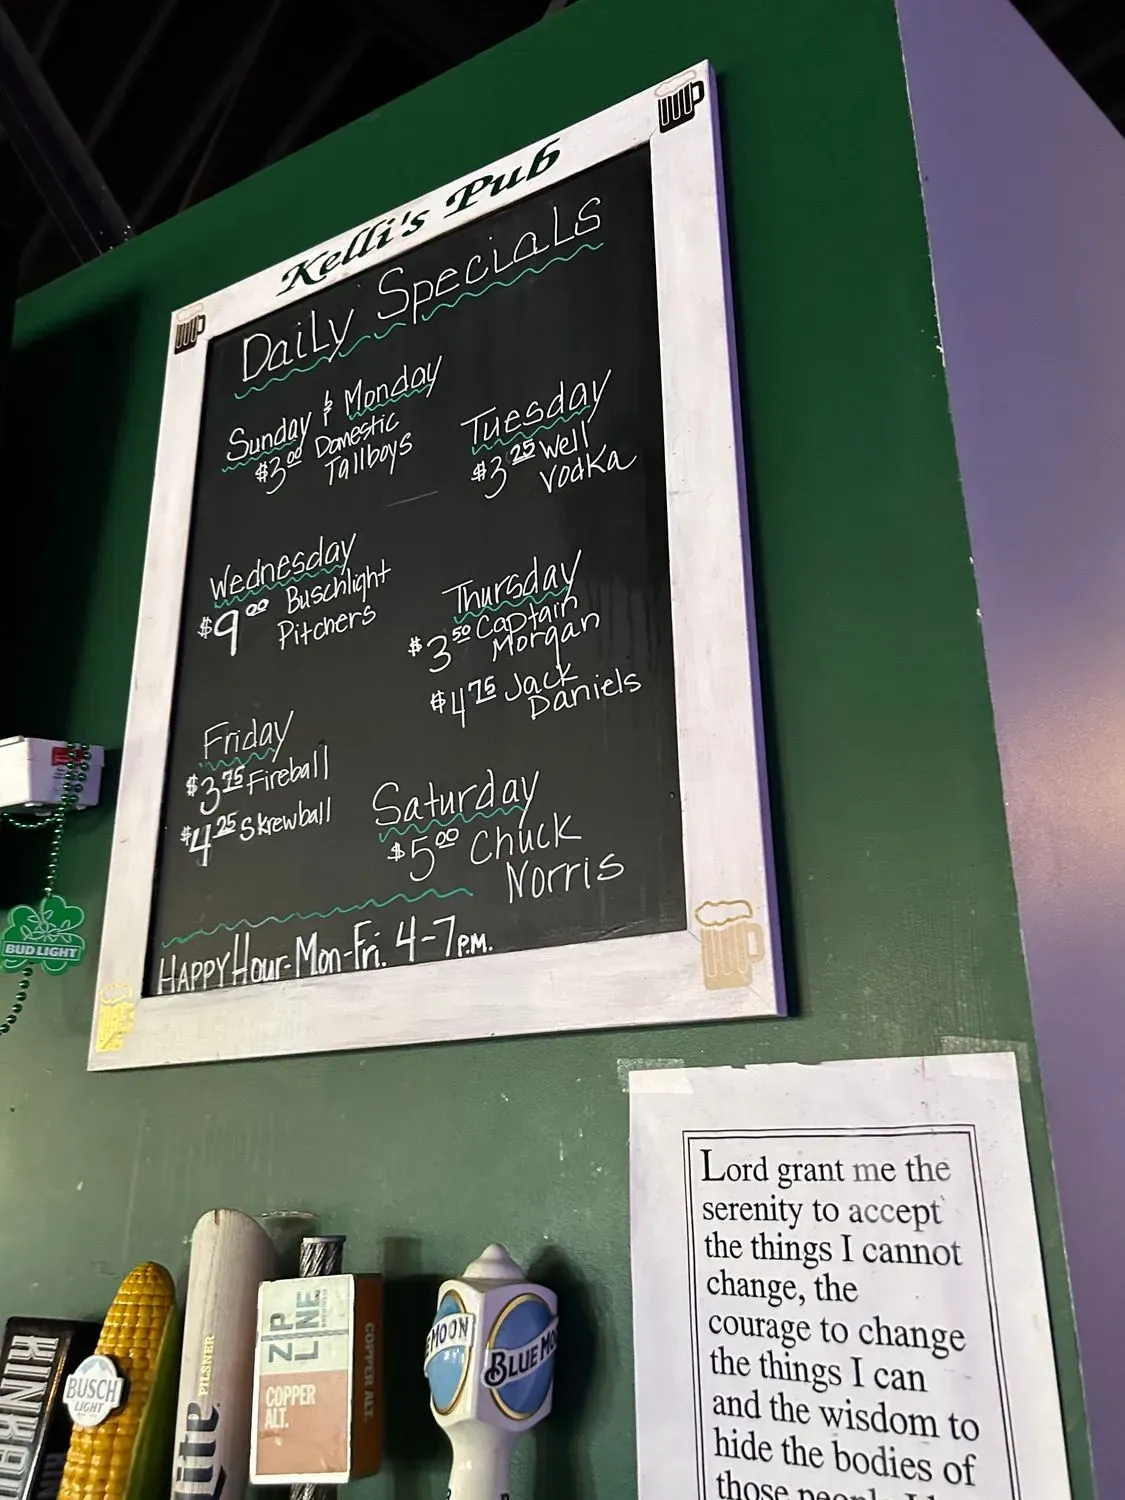 Kelli's Pub
Daily Specials
Sunday & Monday
$3.00 Domestic
Tallboys
Tuesday
$3.25 Well
Vodka
Wednesday
$9.00 Buschlight
Pitchers
Thursday
$3.50 Captain
Morgan
$4.75 Jack
Daniels
Friday
$3.75 Fireball
$4.25 Skrewball
Saturday
$5.00 Chuck
Norris
HAPPY Hour-Mon-Fri. 4-7 P.M.
BUD LIGHT
Lord grant me the
serenity to accept
the things I cannot
change, the
courage to change
the things I can
and the wisdom to
hide the bodies of
those
BUSCH
LIGHT
PILSNER
Lite
ZIP
LINE
COPPER
ALT.
COPPER ALT.
MOON
BLUE